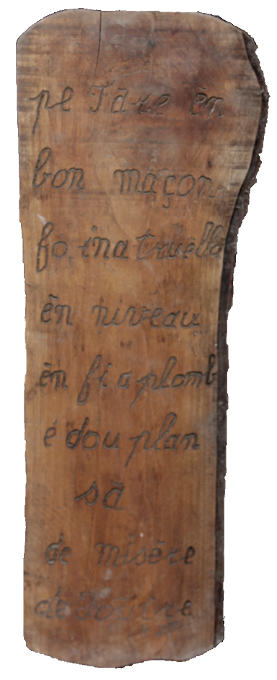 pe Fâre ên
bon maçon
fo ina truella
ên niveau
ên fi a plomb
é dou plan
sâ
de misère
de